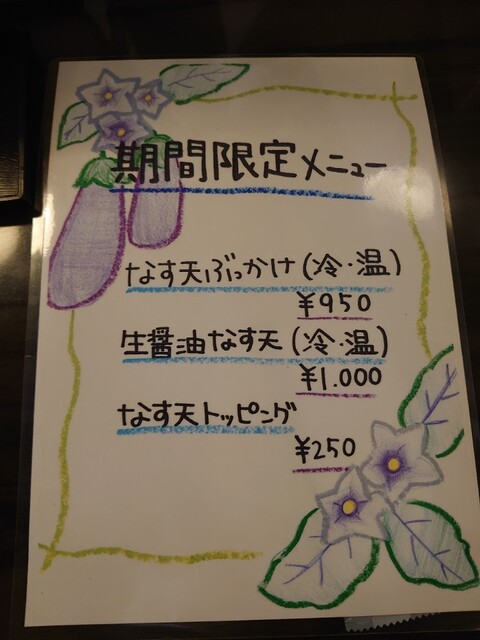 期間限定メニュー
なす天ぶっかけ(冷・温)
¥950
生醤油なす天(冷・温)
¥1.000
なす天トッピング
¥250